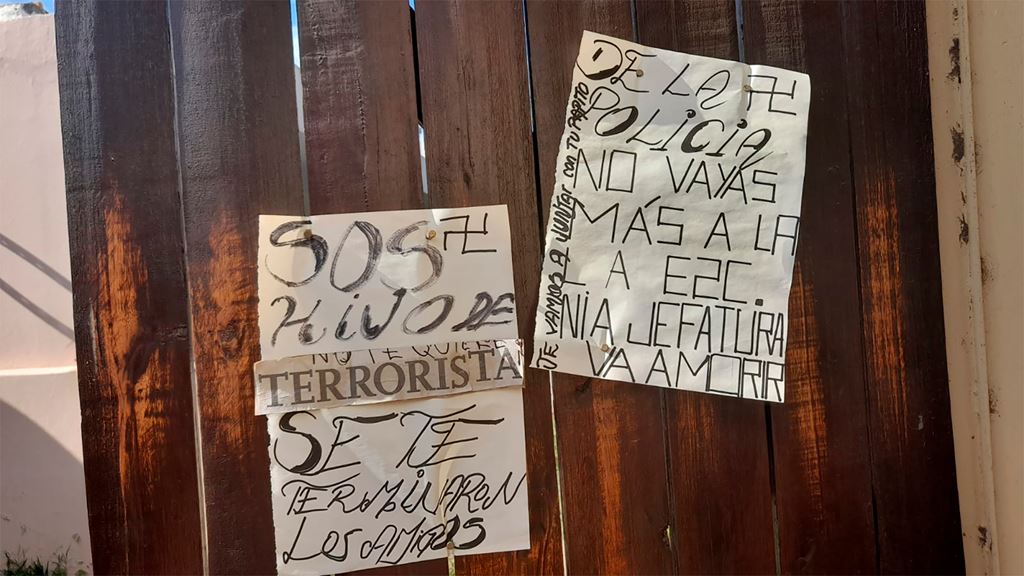 SOS
HIJO DE
NO TE QUIERE
TERRORISTA
SE TE
TERMINARON
LOS AMIGOS
DE LA
POLICIA
NO VAYAS
MÁS A LA
A EZC.
NI A JEFATURA
VA A MORIR
TE VAMOS A JUNTAR CON TU PADRE